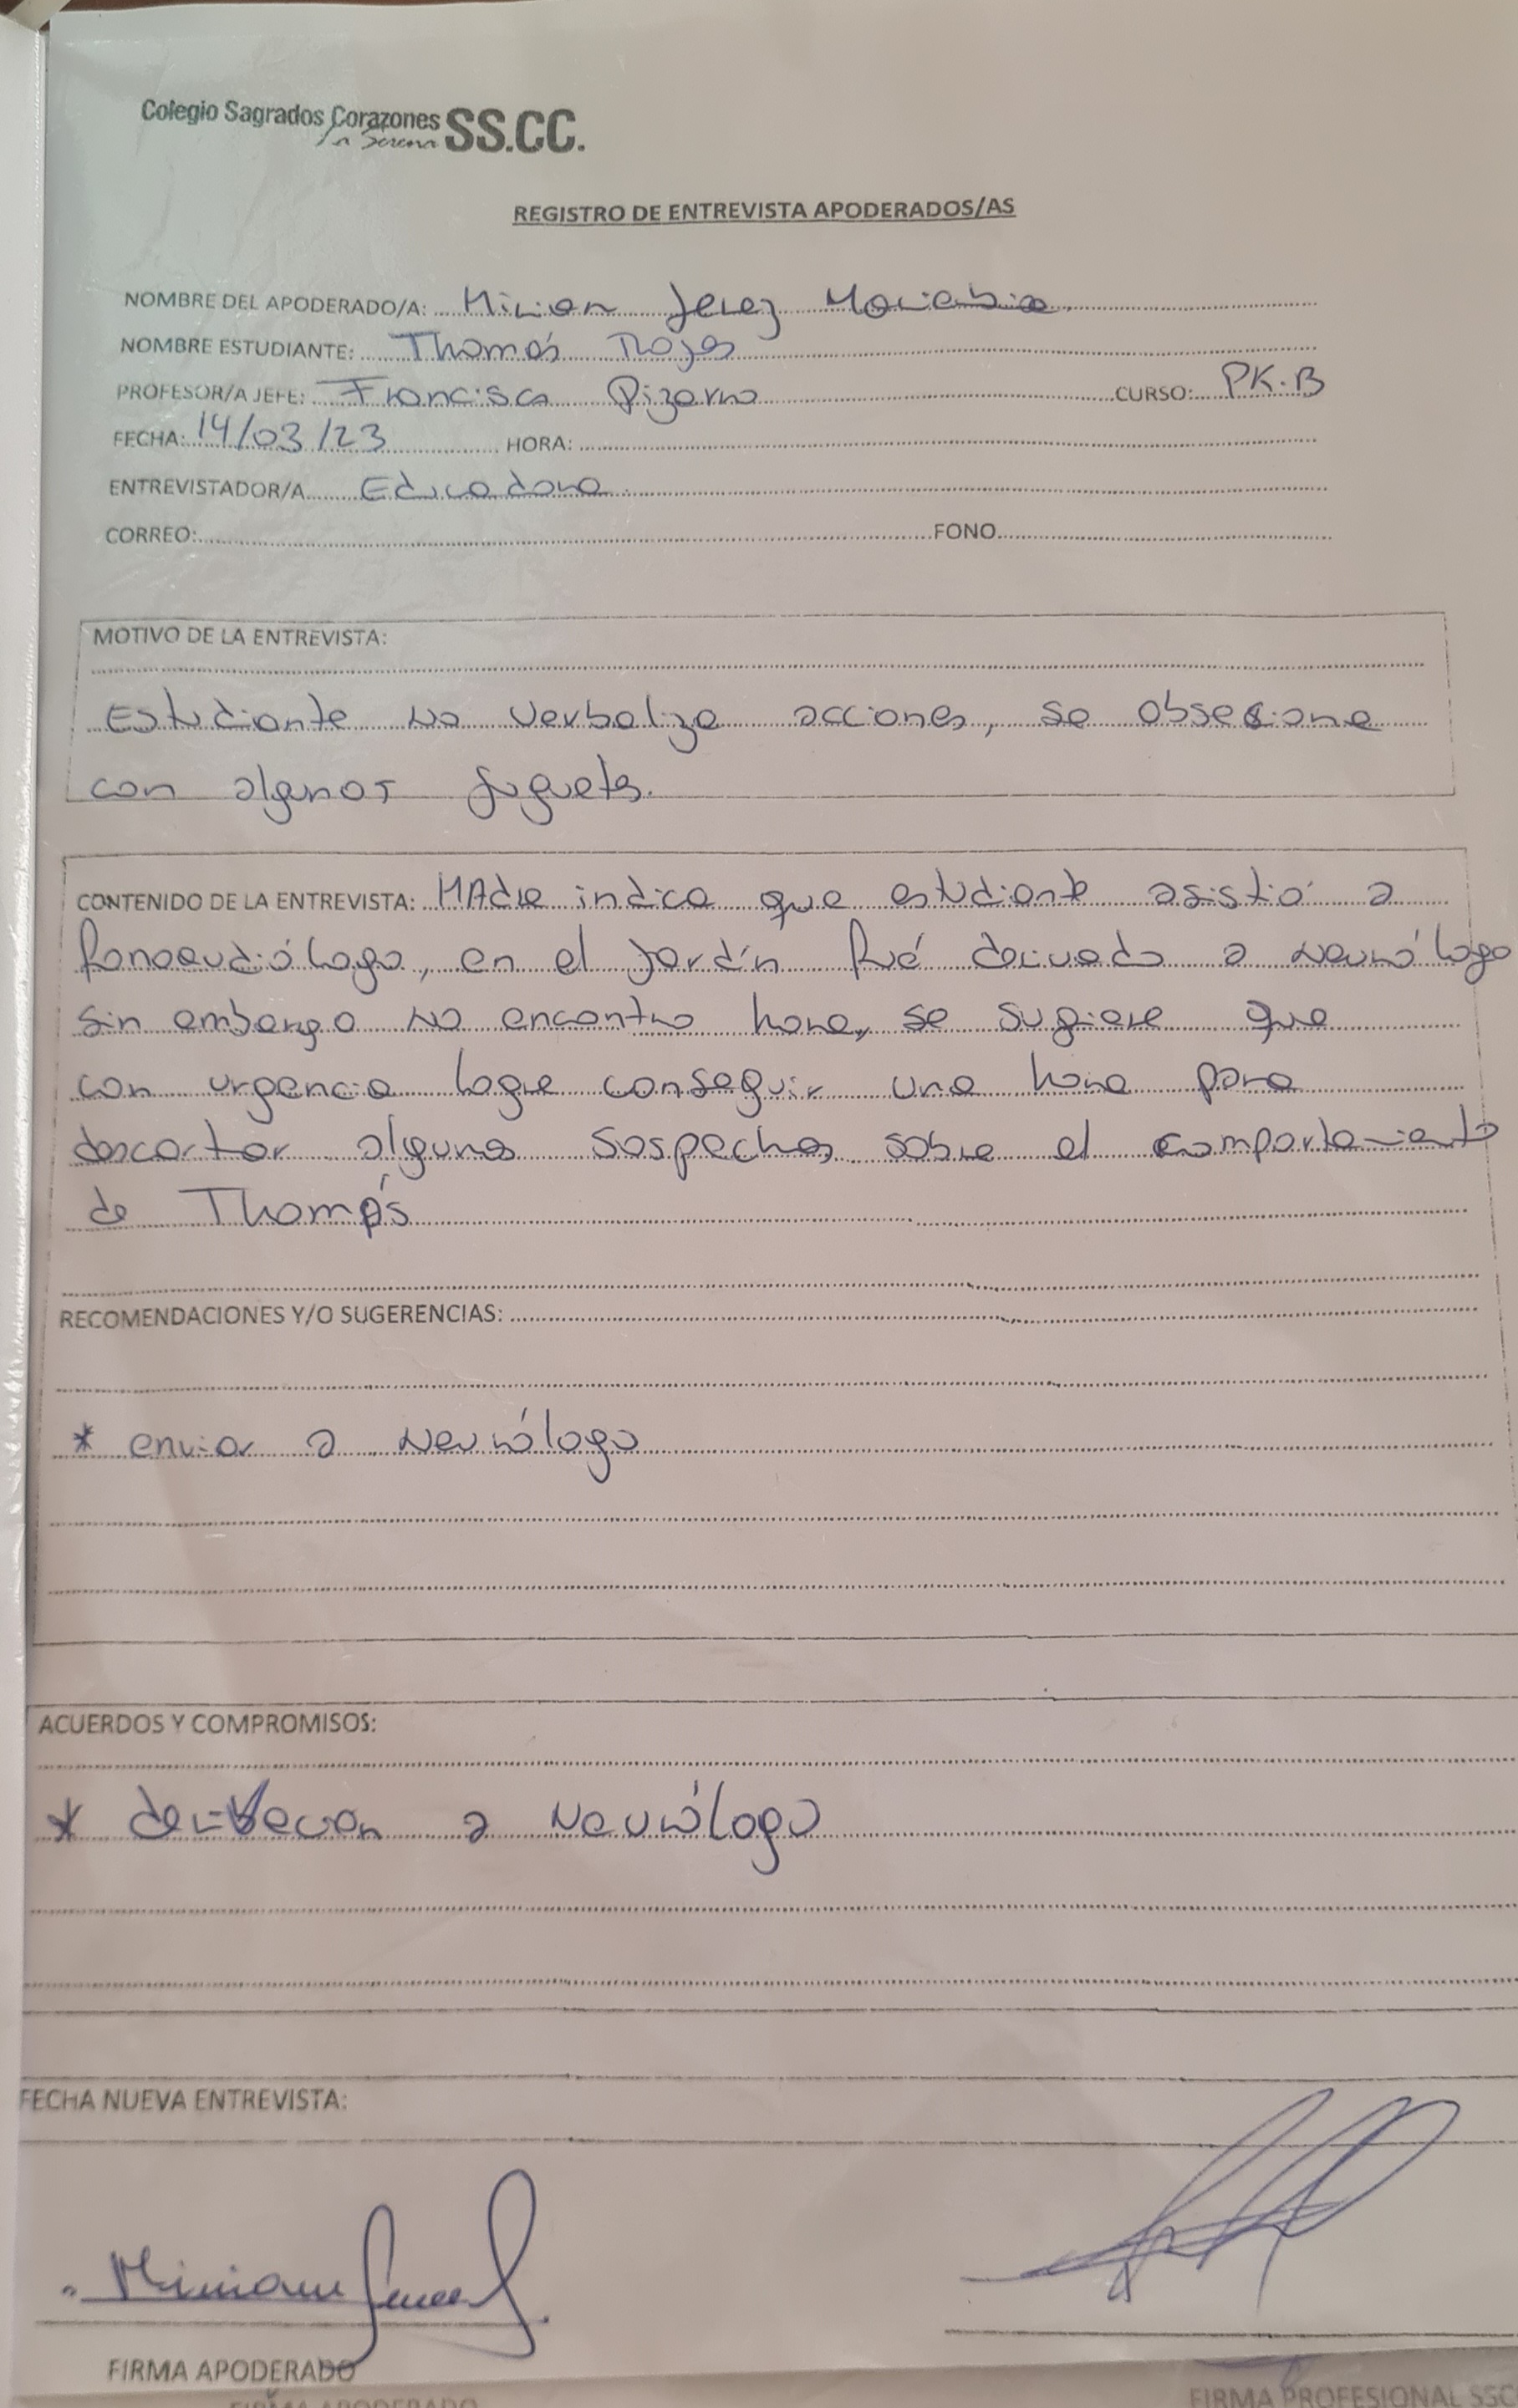 Colegio Sagrados Corazones SS.CC.
La Serena
REGISTRO DE ENTREVISTA APODERADOS/AS
NOMBRE DEL APODERADO/A: Mirian Jerez
NOMBRE ESTUDIANTE: Thomás Rojas
PROFESOR/A JEFE: Francisca Pizarro CURSO: PK.B
FECHA: 14/03/23 HORA:
ENTREVISTADOR/A Educadora
CORREO: FONO
MOTIVO DE LA ENTREVISTA:
Estudiante no verboliza acciones, se obsesiona
con algunos juguetes.
CONTENIDO DE LA ENTREVISTA: MAdre indica que estudiante asistió a
fonoaudiólogo, en el jardín fué derivado a neurólogo
sin embargo no encontro hora, se sugiere que
con urgencia logre conseguir una hora para
descartar algunas sospechas sobre el comportamiento
de Thomás
RECOMENDACIONES Y/O SUGERENCIAS:
* enviar a neurólogo
ACUERDOS Y COMPROMISOS:
* derivacion a neurólogo
FECHA NUEVA ENTREVISTA:
Miriam Jerez
FIRMA APODERADO
FIRMA APODERADO
FIRMA PROFESIONAL SSC